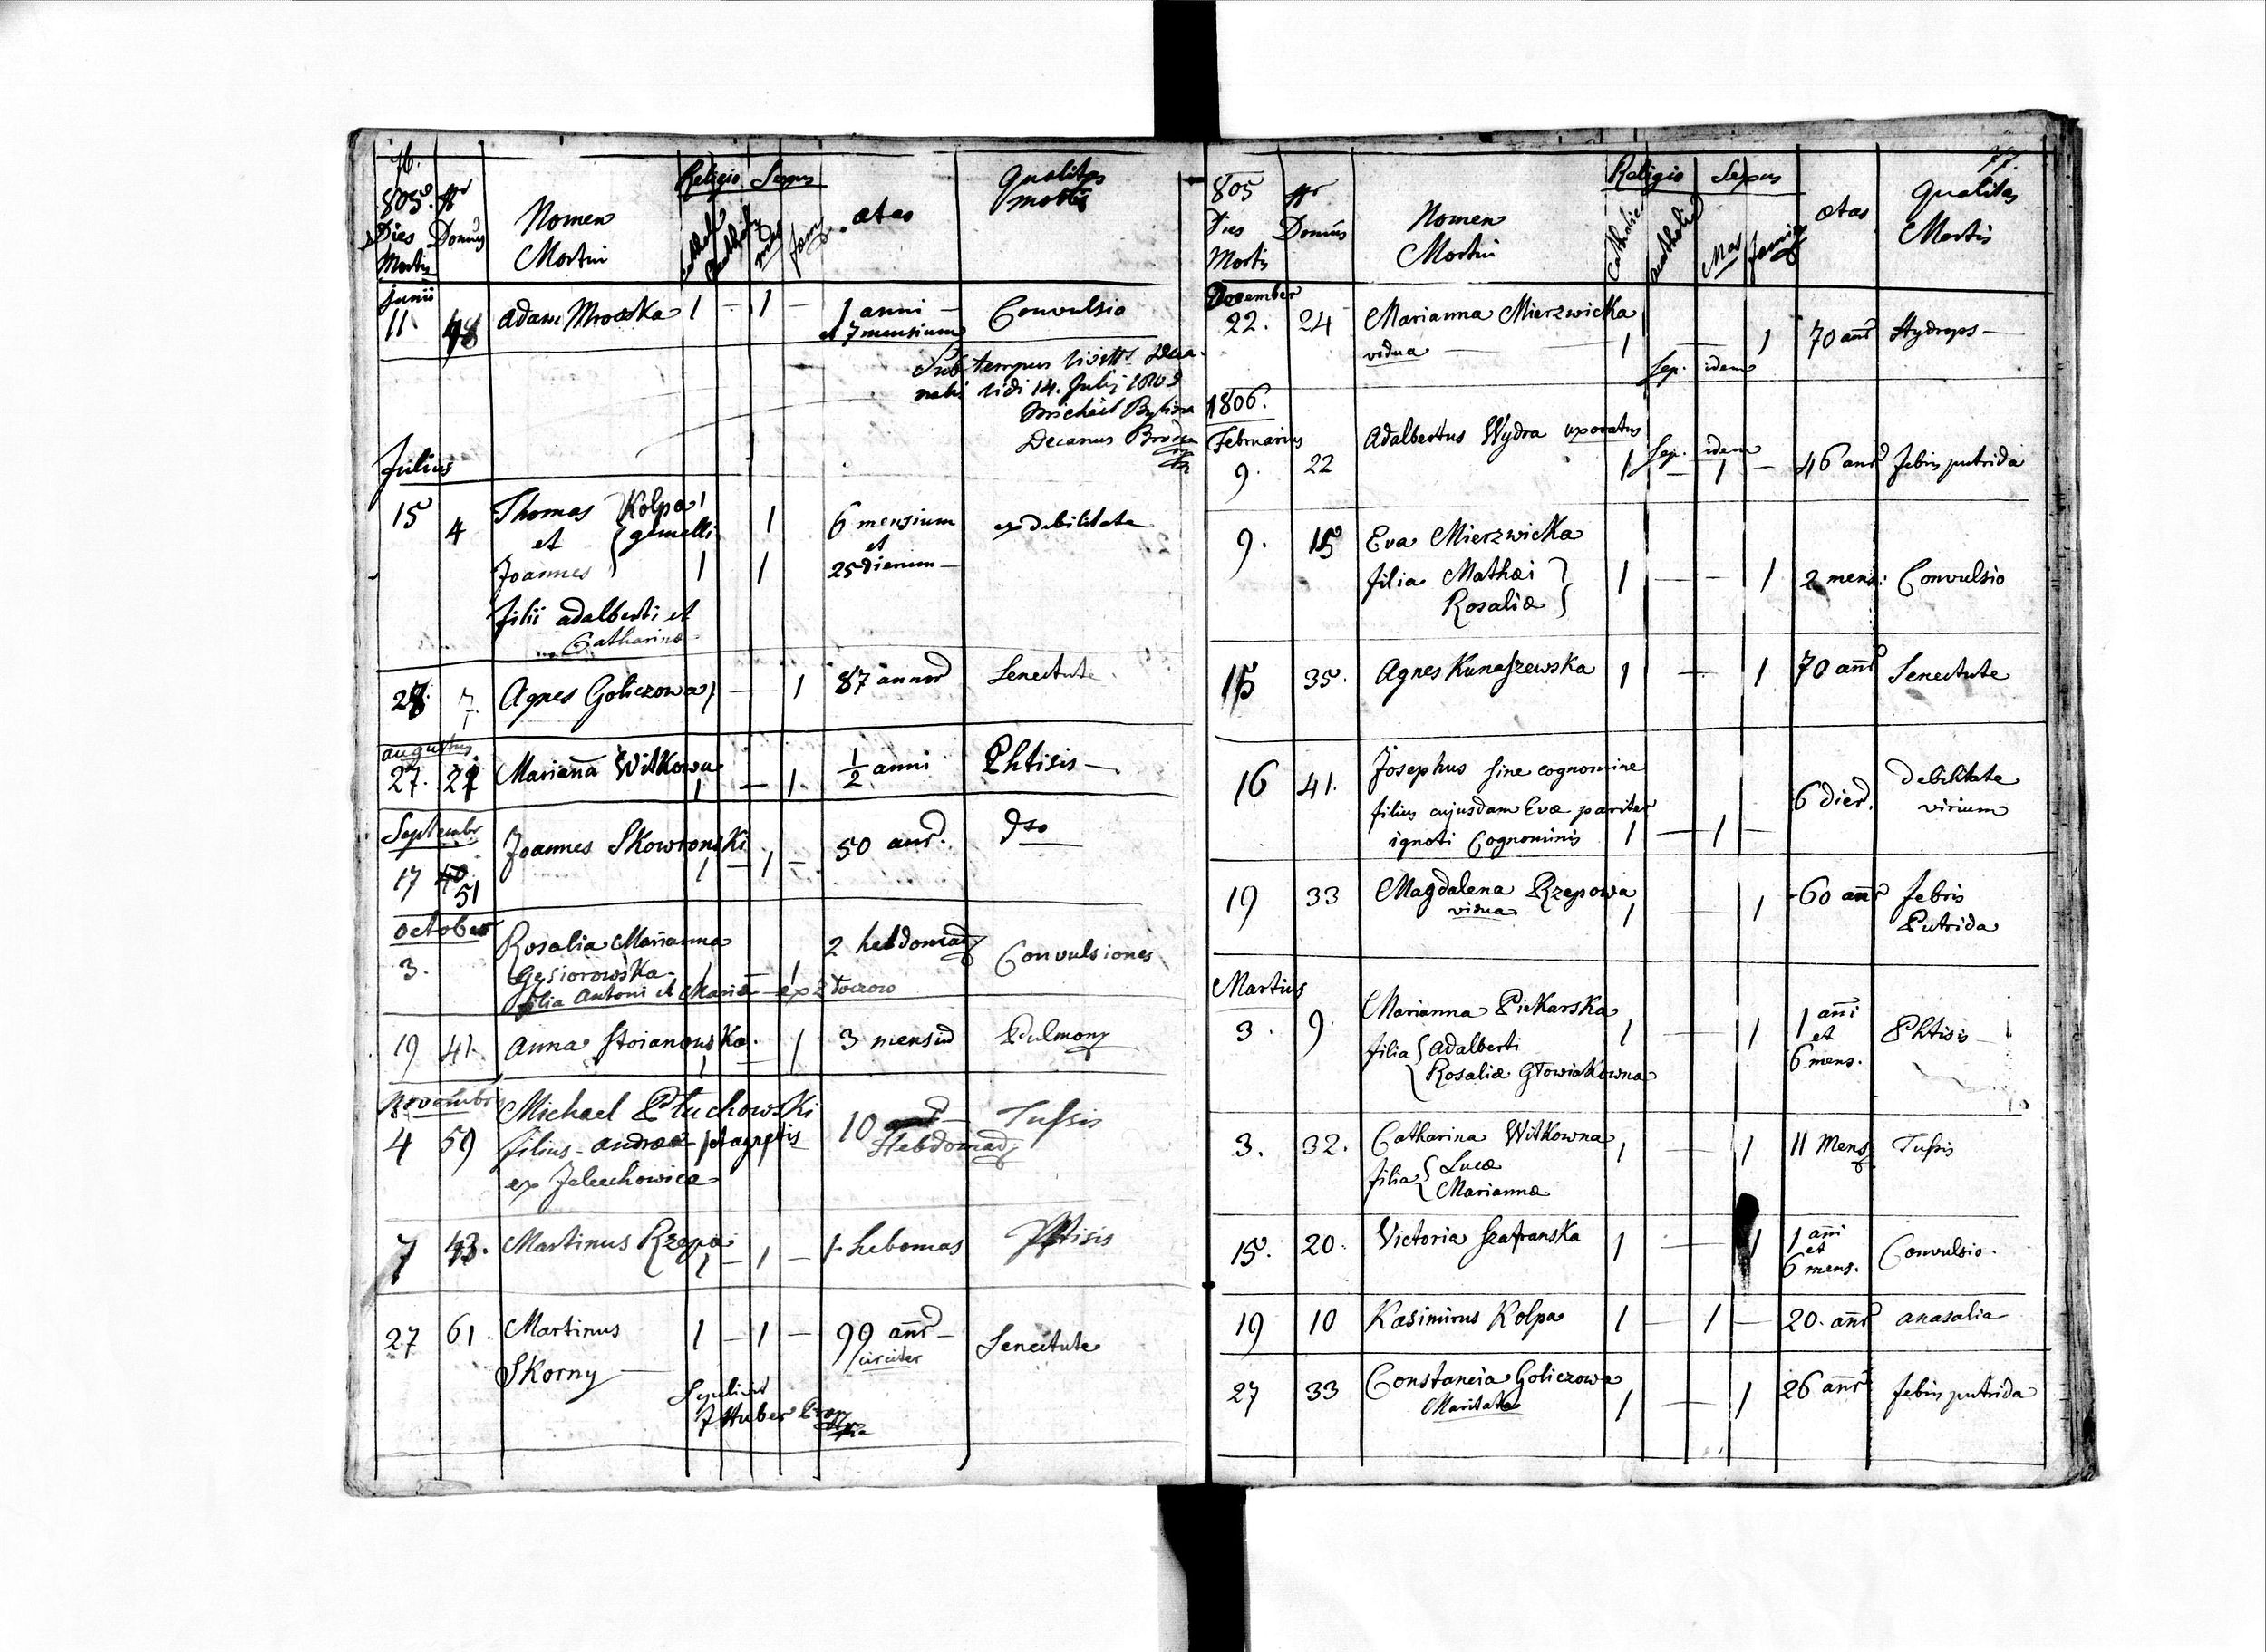 76.
805. Nr Religio Sexus Qualitas
Dies Domus Nomen ætas mortis
Mortis Mortui
Junii
11 48 Adam Mroczka 1 - 1 - 1 anni
et 7 mensium Convulsio
Sub tempus visitts Deca-
nalis vidi 14. Julij 1805
Michael
Decanus
Julius
15 4 Thomas Kolpa 1 1 6 mensium ex debilitate
et gemelli et
Joannes 1 1 25 dierum
filii adalberti et
Catharinæ
28. 7. Agnes Goliczowa 1 - 1 87 annor Senectute
augustus
27. Marianna Witkowa 1 - 1. 1/2 anni Phtisis -
Septembr
17 51 Joannes Skowronski 1 - 1 - 50 anr. dto
october
3. Rosalia Marianna 2 hebdomad Convulsiones
Gęsiorowska 1 - 1
filia Antoni et Mariæ ex Złoczow
19 41. Anna Stoianowska 1 1 3 mensiu Pulmon
Novembris
4 59 Michael Płuchowski 10 Tussis
filius andreæ Hebdomad
ex Zelechowice
7 43. Martinus Rzepa 1 - 1 - 1 hebomas Phtisis
27 61. Martinus 1 - 1 - 99 anr - Senectute
Skorny circiter
Sepelivit
J Huber
77.
805 Nr Religio Sexus Qualitas
Dies Domus Nomen Catholica Acatholica Mas Femina ætas Mortis
Mortis Mortui
December
22. 24 Marianna Mierzwicka 70 anr Hydrops -
vidua 1 - 1
Sep. idem
1806.
Februarius Adalbertus Wydra uxoratus
Sep. idem
9. 22 1 - 1 - 46 anr febris putrida
9. 15 Eva Mierzwicka
filia Mathæi 1 - - 1 2 mens: Convulsio
Rosaliæ
15 35. Agnes Kunaszewska 1 - 1 70 anr Senectute
16 41. Josephus sine cognomine 6 dier. debilitate
filius cujusdam Evæ pariter virium
ignoti Cognominis 1 - 1 -
19 33 Magdalena Rzepowa 60 anr febris
vidua 1 - 1 Putrida
Martius
3. 9. Marianna Piekarska 1 - 1 1 ani Phtisis
filia Adalberti et
Rosaliæ Głowiakowna 6 mens.
3. 32. Catharina Witkowna 1 - 1 11 Mens Tussis
filia Lucæ
Mariannæ
15. 20. Victoria Szafranska 1 - 1 1 ani Convulsio.
et
6 mens.
19 10 Kasimirus Kolpa 1 - 1 - 20. anr anasalia
27 33 Constancia Goliczowa 26 anr febris putrida
Maritata 1 - 1